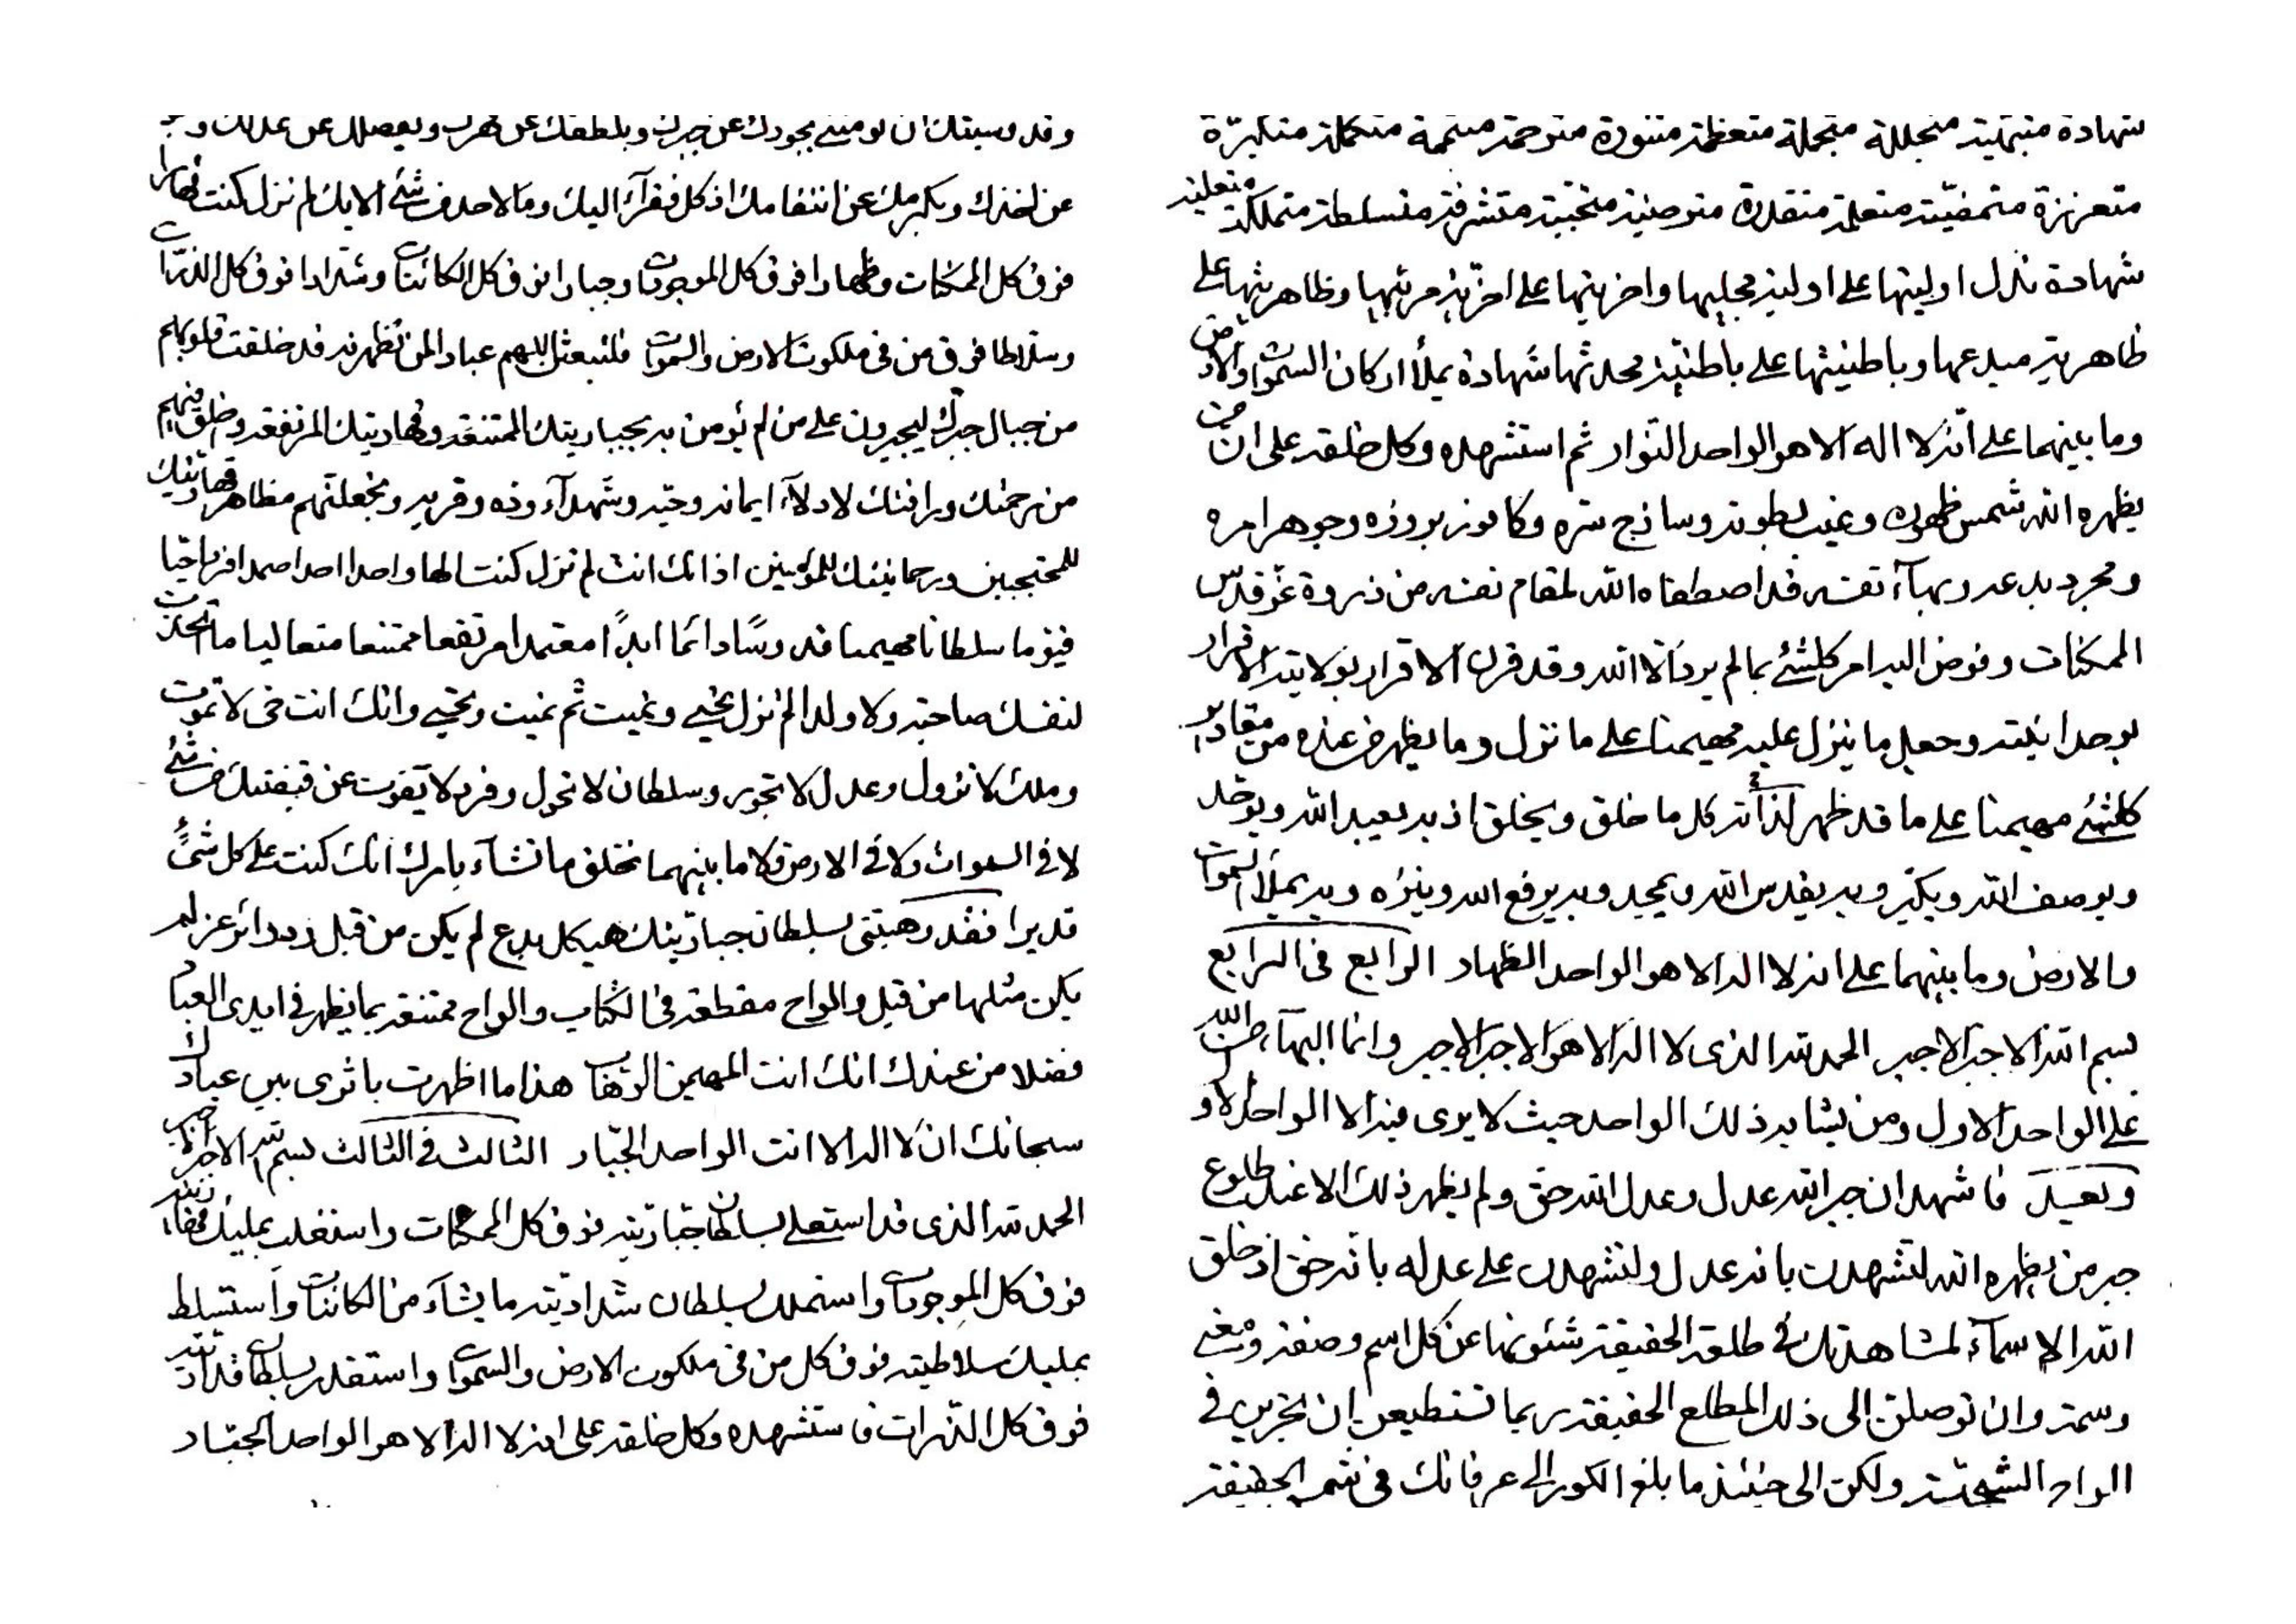 شهادة متبهية متجللة متجملة متعظمة متنورة مترحمة متكملة متكبرة
متعززة متمضية متعلمة متقدرة مترضية متحببة متشرفة متسلطة متملكة متعلية
شهادة تدل اوليتها على اولية مجليها واخريتها على اخرية مرئيها وظاهريتها على
ظاهرية مبدعها وباطنيتها على باطنية محدثها شهادة يملأ اركان السموات والارض
وما بينهما على انه لا اله الا هو الواحد النوار ثم استشهده وكل خلقه على ان من
يظهره الله شمس ظهوره وغيب بطونه وساذج سره وكافور بروزه وجوهر امره
ومجرد بدعه وبهآء نفسه قد اصطفاه الله لمقام نفسه من ذروة عز قدس
الممكنات وفوض اليه امر كلشئ بما لم يرد الا الله وقد قرن الاقرار بولايته الاقرار
بوحدانيته وجعل ما ينزل عليه مهيمنا على ما نزل وما يظهر من عنده من مقادير
كلشئ مهيمنا على ما قد ظهر لذاته كل ما خلق ويخلق اذ به يعبد الله ويوحد
ويوصف الله ويكبر وبه يقدس الله ويمجد وبه يرفع الله وينزه وبه يملأ السموات
والارض وما بينهما على انه لا اله الا هو الواحد الظهار الرابع فى الرابع
بسم الله الاجبر الاجبر الحمد لله الذى لا اله الا هو الاجبر الاجبر وانما البهآء من الله
على الواحد الاول ومن يشابه ذلك الواحد حيث لا يرى فيه الا الواحد الاول
وبعد فاشهد ان جبر الله عدل وعدل الله حق ولم يظهر ذلك الا عند طلوع
جبر من يظهره الله لتشهدن بانه عدل ولتشهدن على عدله بانه حق اذ خلق
الله الاسمآء لمشاهدتك فى طلعة الحقيقة شئونها عن كل اسم وصفة ونعت
وسمة وان توصلن الى ذلك المطلع الحقيقة ربما تستطيعن ان تجرين فى
الواح الشجية ولكن الى حينئذ ما بلغ الكور الى عرفانك فى شمس الحقيقة
وقد سبقتك ان تومني بجودك عن جبرك وبلطفك عن قهرك وبفضلك عن عدلك و
عن اخذك وبكرمك عن انتقامك اذ كل فقرآء اليك وما لاحد من شئ الا بك لم تزل كنت قهارا
فوق كل الممكنات وظهارا فوق كل الموجودات وجبارا فوق كل الكائنات وشدادا فوق كل الذرات
وسلاطا فوق من فى ملكوت الارض والسموات فلتبعثن اللهم عبادا لمن تظهرنه قد خلقت قلوبهم
من جبال جبرك ليجبرون على من لم يؤمن به بجباريتك الممتنعة وقهاريتك المرتفعة وخلق فيهم
من رحمتك ورافتك لادلآء ايمانه وحبه وشهدآء وده وقربه وتجعلنهم مظاهر قهاريتك
للمحتجبين ورحمانيتك للمؤمنين اذ انك انت لم تزل كنت الها واحدا احدا صمدا فردا حيا
قيوما سلطانا مهيمنا قدوسا دائما ابدا معتمدا مرتفعا ممتنعا متعاليا ما اتخذت
لنفسك صاحبة ولا ولدا لم تزل تحيى وتميت ثم تميت وتحيى وانك انت حى لا تموت
وملك لا تزول وعدل لا تجور وسلطان لا تحول وفرد لا يفوت عن قبضتك من شئ
لا فى السموات ولا فى الارض ولا ما بينهما تخلق ما تشآء بامرك انك كنت على كل شئ
قديرا فقد وهبتنى بسلطان جباريتك هيكل بدع لم يكن من قبل ودوائر عز لم
يكن مثلها من قبل والواح مقطعة فى الكتاب والواح ممتنعة بما يظهر فى ايدى العباد
فضلا من عندك انك انت المهيمن الوهاب هذا ما اظهرت باثرى بين عبادك
سبحانك ان لا اله الا انت الواحد الجبار الثالث فى الثالث بسم الله الاجبر الاجبر
الحمد لله الذى قد استعلى بسلطان جباريته فوق كل الممكنات واستغلب بمليك قهاريته
فوق كل الموجودات واستملك بسلطان شداديته ما يشآء من الكائنات واستسلط
بمليك سلاطيته فوق كل من فى ملكوت الارض والسموات واستقدر بسلطان قداريته
فوق كل الذرات فاستشهده وكل خلقه على انه لا اله الا هو الواحد الجبار